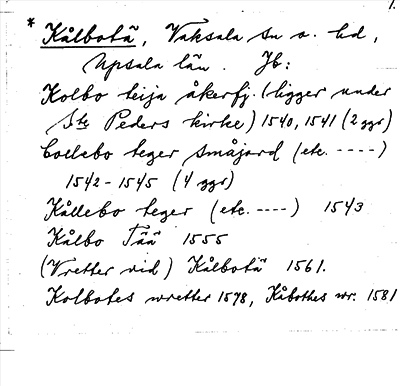 1.
* Kålbotä, Vaksala sn o. hd,
Upsala län. Jb:
Kolbo teija åkerfj. (ligger under
Ste Peders kirke) 1540, 1541 (2 ggr)
Collebo teger småjord (etc. ----)
1542-1545 (4 ggr)
Kållebo teger (etc. ----) 1543
Kålbo Tää 1555
(Vretter vid) Kålbotä 1561.
Kolbotes wretter 1578, Kåbothes wr. 1581